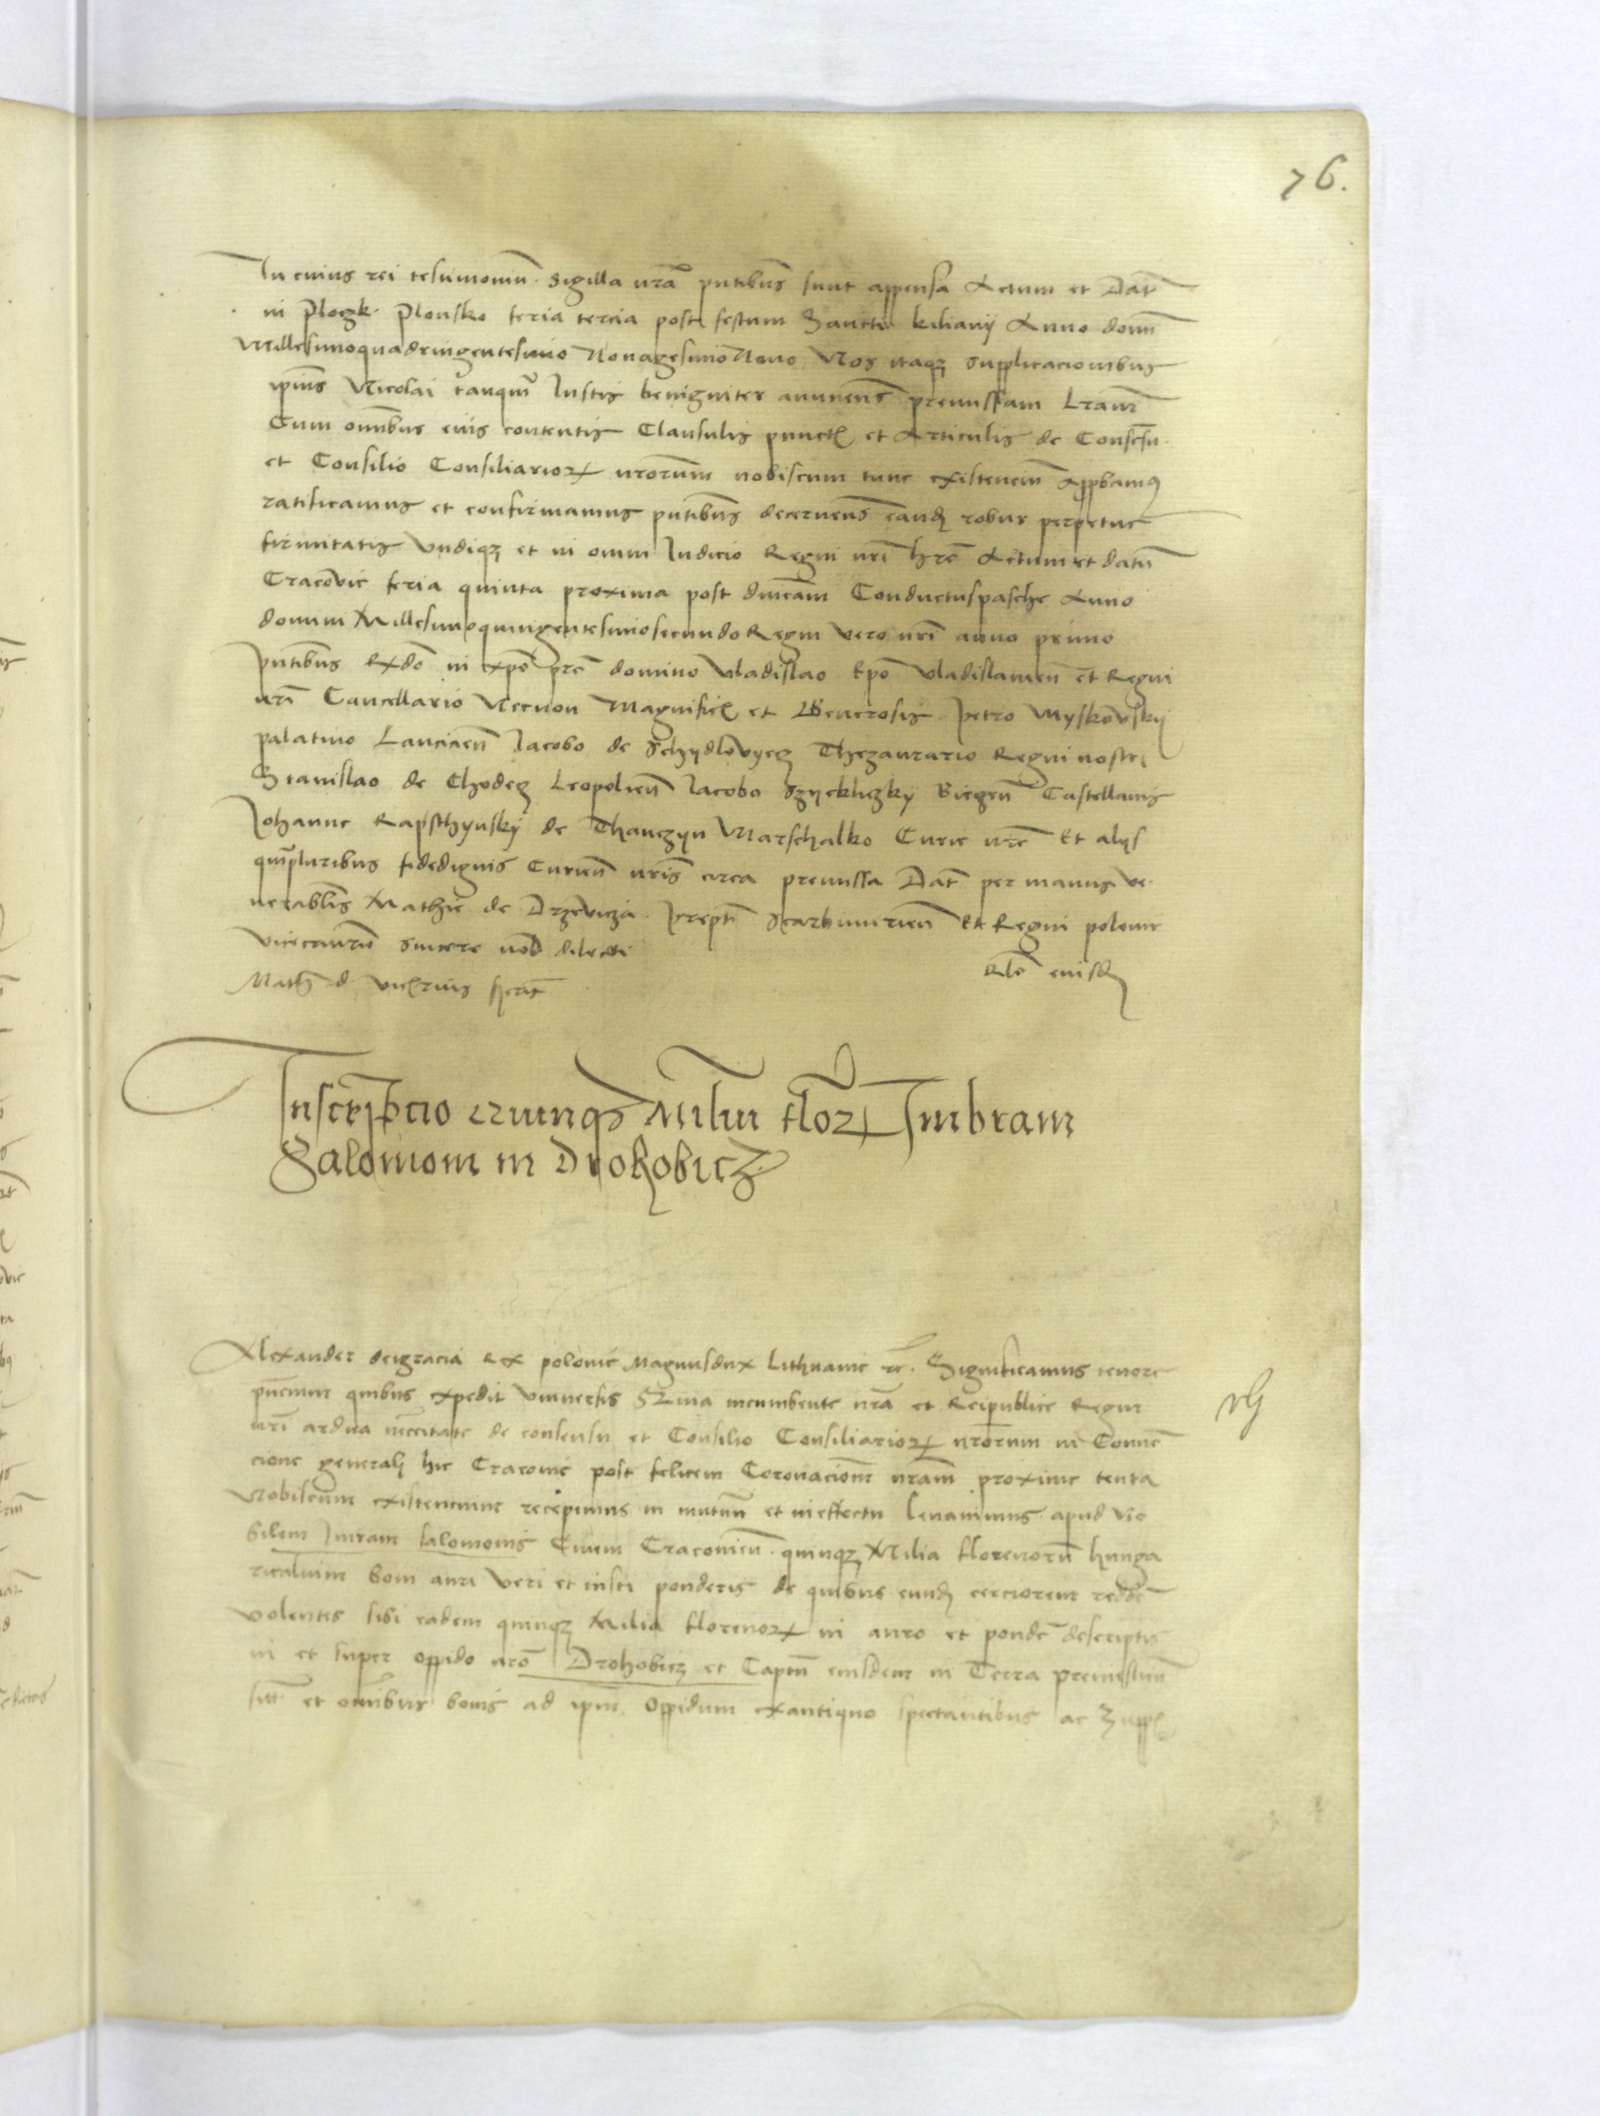 76.
In cuius rei testimoniū sigilla nr̄a pn̄tibus sunt appensa Actum et Dat̄
in Ploczk Plonsko feria tercia post festum Sancti kiliani Anno domī
Millesimoquadringentesimo Nonagesimo Nono Nos itaqz supplicacionibus
ip̄ius Nicolai tanqm̄ Iustis benigniter annuens premissam Lr̄am
Cum omībus eius contentis Clausulis punct et Articulis de Consesū
et Consilio Consiliarioꝝ nr̄orum nobiscum tunc existenciū Appbamꝰ
ratificamus et confirmamus pn̄tibus decernens eandꝫ robur perpetue
firmitatis Undiqz et in omni Iudicio Regni nr̄i hr̄e Actum et datū
Cracovie feria quinta proxima post dnīcam Conductuspasche Anno
domini Millesimoquingentesimosecundo Regni vero nr̄i anno primo
pn̄tibus Rx̄do in xp̄o pr̄e domino Vladislao Ep̄o Vladislavien̄ et Regni
nr̄i Cancellario Necnon Magnific et Generosis Petro Myskowsky
palatino Lancicien̄ Iacobo de Schydlowyecz Thezaurario Regni nostri
Stanislao de Chodecz Leopolien̄ Iacobo Szyeklyczky Biegen̄ Castellanis
Johanne Rapschynsky de Thanczyn Marschalko Curie nr̄e Et alijs
qm̄pluribus fidedignis Curien̄ nr̄is circa premissa Dat̄ per manus ve
nerablis Mathie de Drzevicza Prept̄i Scarbimirien̄ Et Regni polonie
Vicecancrii sincere nob̄ dilecti
Rlō eiusdꝫ
Math d vic
Inscripcio quinqꝫ Milia florꝫ Imbram
Salomom in Drohobicz
Alexander deigracia Rex polonie Magnusdux Lithuanie ec̄. Significamus tenore
pn̄cium quibus expedit Universis Qm̄a incumbente nr̄a et Reipublice Regni
nr̄i ardua nc̄citate de consensu et Consilio Consiliarioꝝ nr̄orum in Conven
cione generali hic Cracovie post felicem Coronacionē nr̄am proxime tenta
Nobiscum existencium recepimus in mutuū et in effectu levavimus apud No
bilem Imram salomonis Civem Cracovien̄ quinqꝫ Milia florenorū hunga
ricalium boni auri veri et iusti ponderis de quibus eundꝫ cerciorem redde
volentes sibi eadem quinqꝫ Milia florenoꝝ in auro et ponde descriptis
in et super Oppido nr̄o Drohobicz et Captū eiusdem in Terra premislien̄
sitt̄ et om̄ibus bonis ad ip̄m Oppidum exantiquo spectantibus ac Zupp